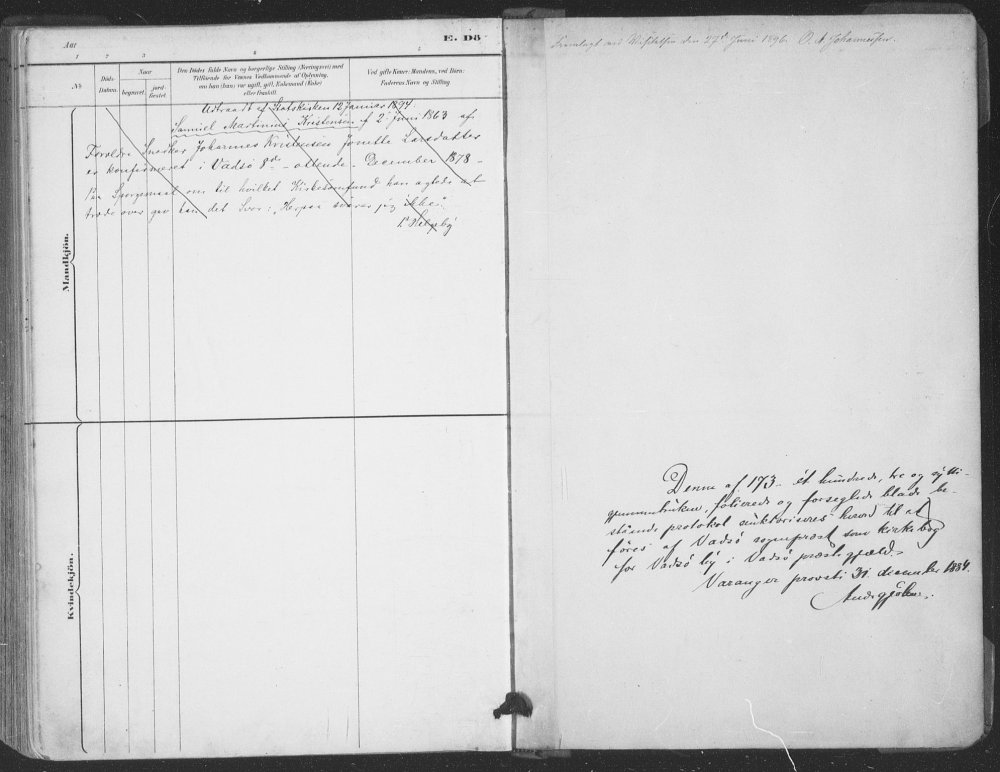 E. Dö
Aar
1 2 3 4 5
№
Döds-
Datum.
Naar
begravet.
jord-
fæstet.
Den Dödes fulde Navn og borgerlige Stilling (Næringsvei) med
Tilföiende for Voxnes Vedkommende af Oplysning,
om han (hun) var ugift, gift, Enkemand (Enke)
eller fraskilt.
Ved gifte Koner: Mandens, ved Börn:
Faderens Navn og Stilling.
Udtraadt af Statskirken 12 Januar 1894
Samuel Martinius Kristensen f 2 juni 1863 af
Forældre Snedker Johannes Kristensen Jonette Larsdatter
er konfirmeret i Vadsö 8de – ottende – December 1878 –
Paa Spörgsmaal om til hvilket Kirkesamfund han agtede at
træde over gav han det Svar: "Herpaa svarer jeg ikke".
Mandkjön.
Kvindekjön.
Fremlagt ved den 27de Juni 1896. O. A. Johannessen.
Denne af 173 – ét hundrede, tre og sytti –
gjennemtrukne, folierede og forseglede blade be-
stående protokol auktoriseres herved til at
föres af Vadsö sogneprest som kirkebog
for Vadsö by i Vadsö præstegjæld.
Varanger provsti 31 december 1884.